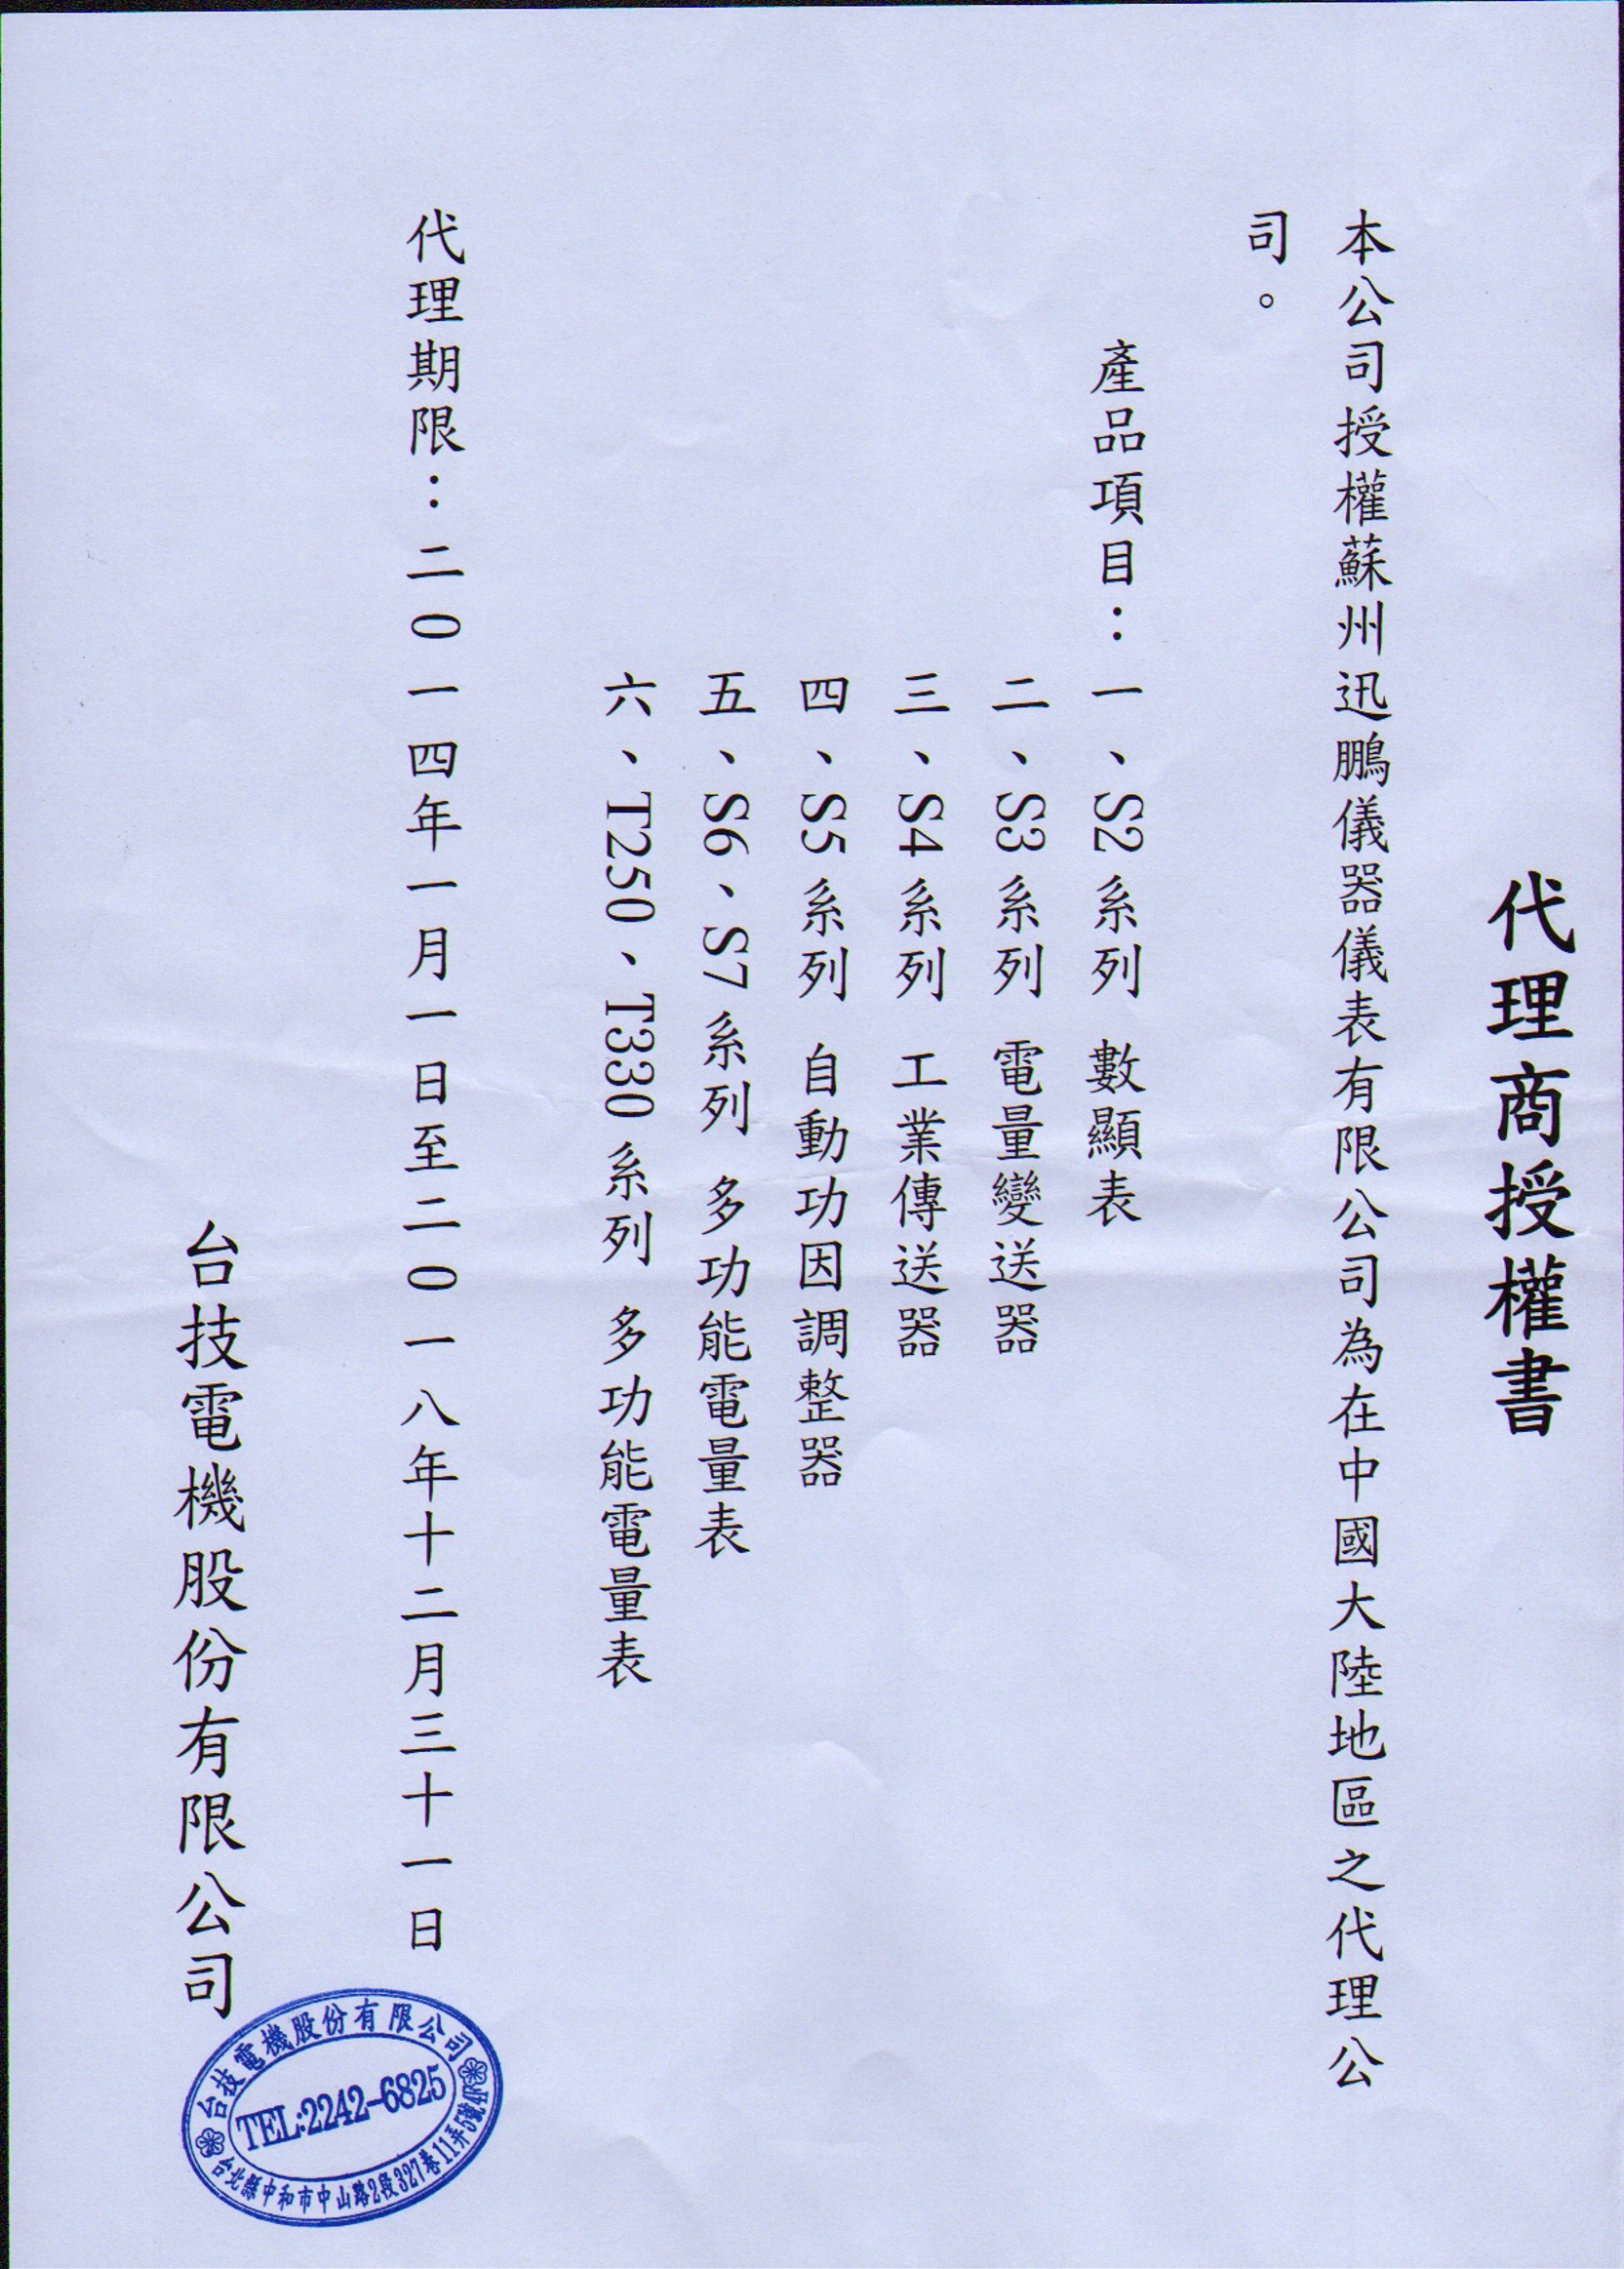 代理商授權書
本公司授權蘇州迅鵬儀器儀表有限公司為在中國大陸地區之代理公
司。
產品項目：一、S2系列 數顯表
二、S3系列 電量變送器
三、S4系列 工業傳送器
四、S5系列 自動功因調整器
五、S6、S7系列 多功能電量表
六、T250、T330系列 多功能電量表
代理期限：二0一四年一月一日至二0一八年十二月三十一日
台技電機股份有限公司
台技電機股份有限公司
TEL:2242-6825
台北縣中和市中山路2段327巷11弄5號4F